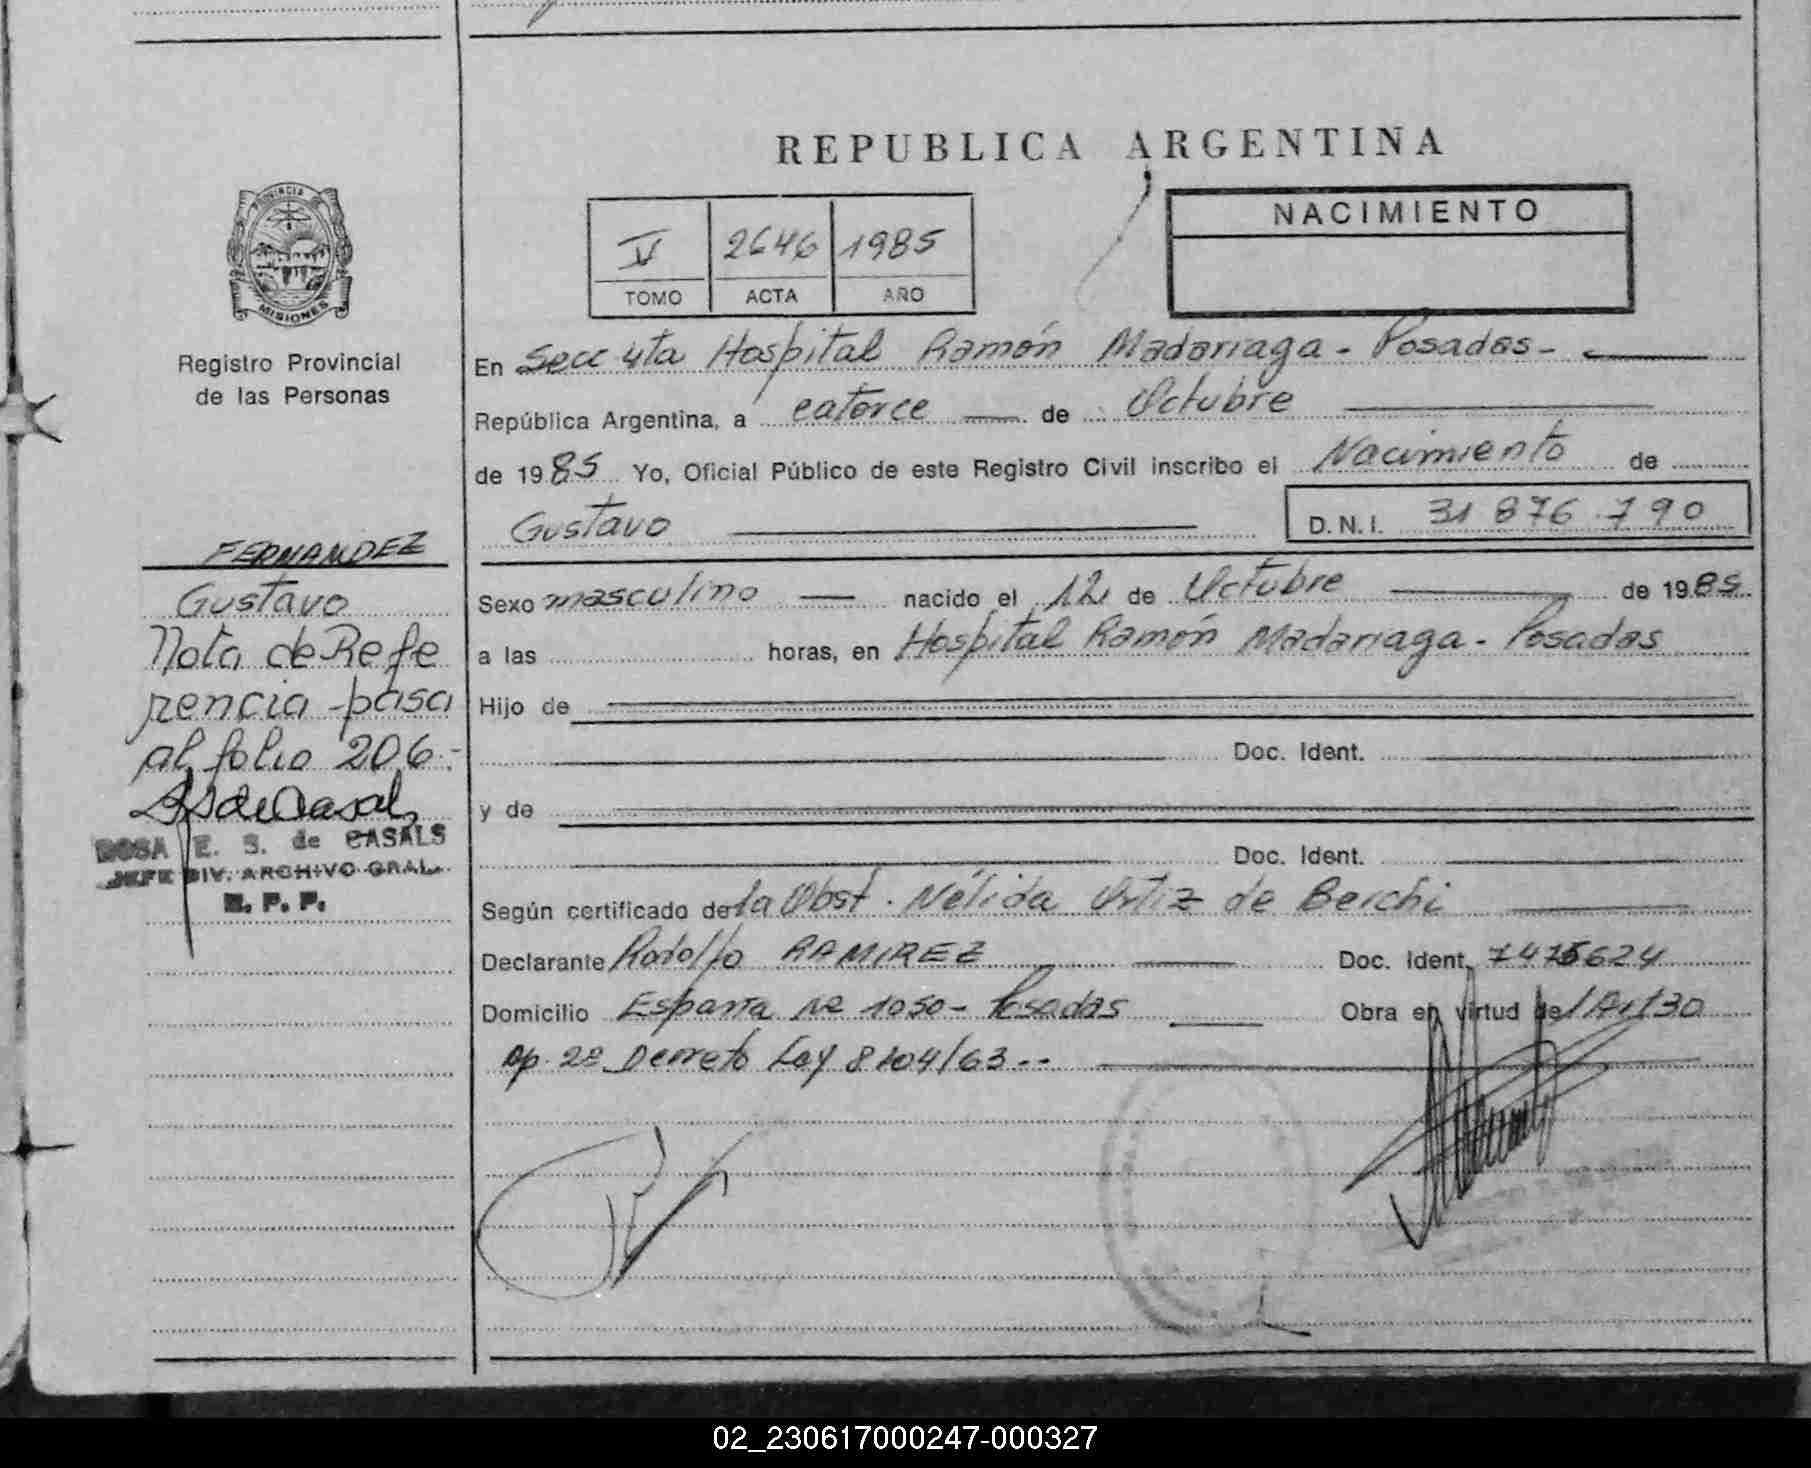 REPUBLICA ARGENTINA
PROVINCIA DE
MISIONES
Registro Provincial
de las Personas
V 2646 1985
TOMO ACTA AÑO
NACIMIENTO
En Secc 4ta Hospital Ramón Madariaga - Posadas -
República Argentina, a catorce de Octubre
de 1985 Yo, Oficial Público de este Registro Civil inscribo el Nacimiento de
Gustavo D.N.I. 31 876 790
FERNANDEZ
Gustavo
Nota de Refe
rencia pasa
al folio 206.-
ROSA E. S. de CASALS
JEFE DIV. ARCHIVO GRAL.
R. P. P.
Sexo masculino nacido el 12 de Octubre de 1985.
a las horas, en Hospital Ramón Madariaga - Posadas
Hijo de
Doc. Ident.
y de
Doc. Ident.
Según certificado de la Obst. Nélida Ortiz de Berchi
Declarante Rodolfo RAMIREZ Doc. Ident. 7475624
Domicilio España Nº 1050 - Posadas Obra en virtud de l Art 30
Ap. 2º Decreto Ley 8204/63 --
02_230617000247-000327